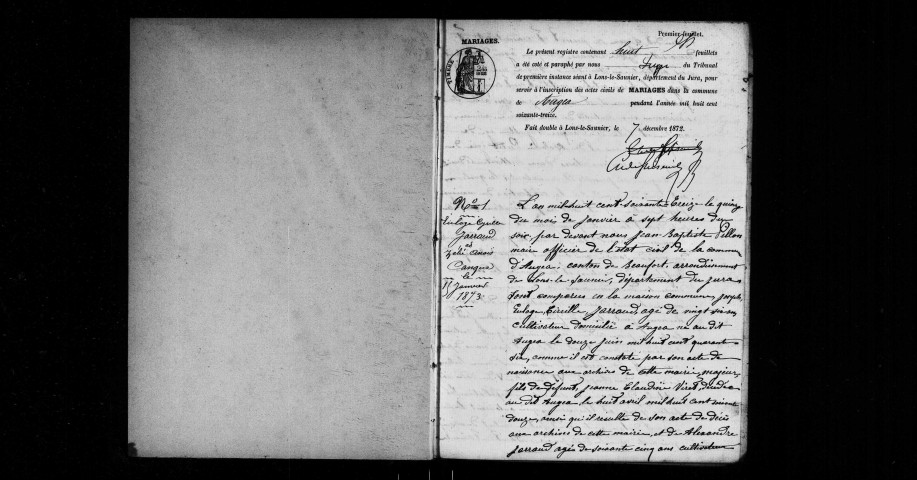 Premier feuillet.
MARIAGES.
Le présent registre contenant huit feuillets
a été coté et paraphé par nous Juge du Tribunal
de première instance séant à Lons-le-Saunier, département du Jura, pour
servir à l'inscription des actes civils de MARIAGES dans la commune
de Augea pendant l'année mil huit cent
soixante-treize.
Fait double à Lons-le-Saunier, le 7 décembre 1872.
TIMBRE
No 1
Euloge Cyrille
Jarraud
et
Zélie
le
15 Janvier
1873
L'an mil huit cent soixante treize le quinze
du mois de janvier à sept heures du
soir, par devant nous Jean Baptiste Pillon
maire officier de l'état civil de la commune
d'Augea, canton de Beaufort, arrondissement
de Lons-le-Saunier, département du jura
sont comparus en la maison commune, Joseph
Euloge, Cirille, Jarraud, agé de vingt six ans
cultivateur domicilié à Augea né au dit
Augea le douze juin mil huit cent quarante
six, comme il est constaté par son acte de
naissance aux archives de cette mairie, majeur,
fils de défunt, jeanne Claudine Viret, décédée
au dit Augea, le huit avril mil huit cent
douze, ainsi qu'il resulte de son acte de décès
aux archives de cette mairie, et de Alexandre
Jarraud agé de soixante cinq ans cultivateur